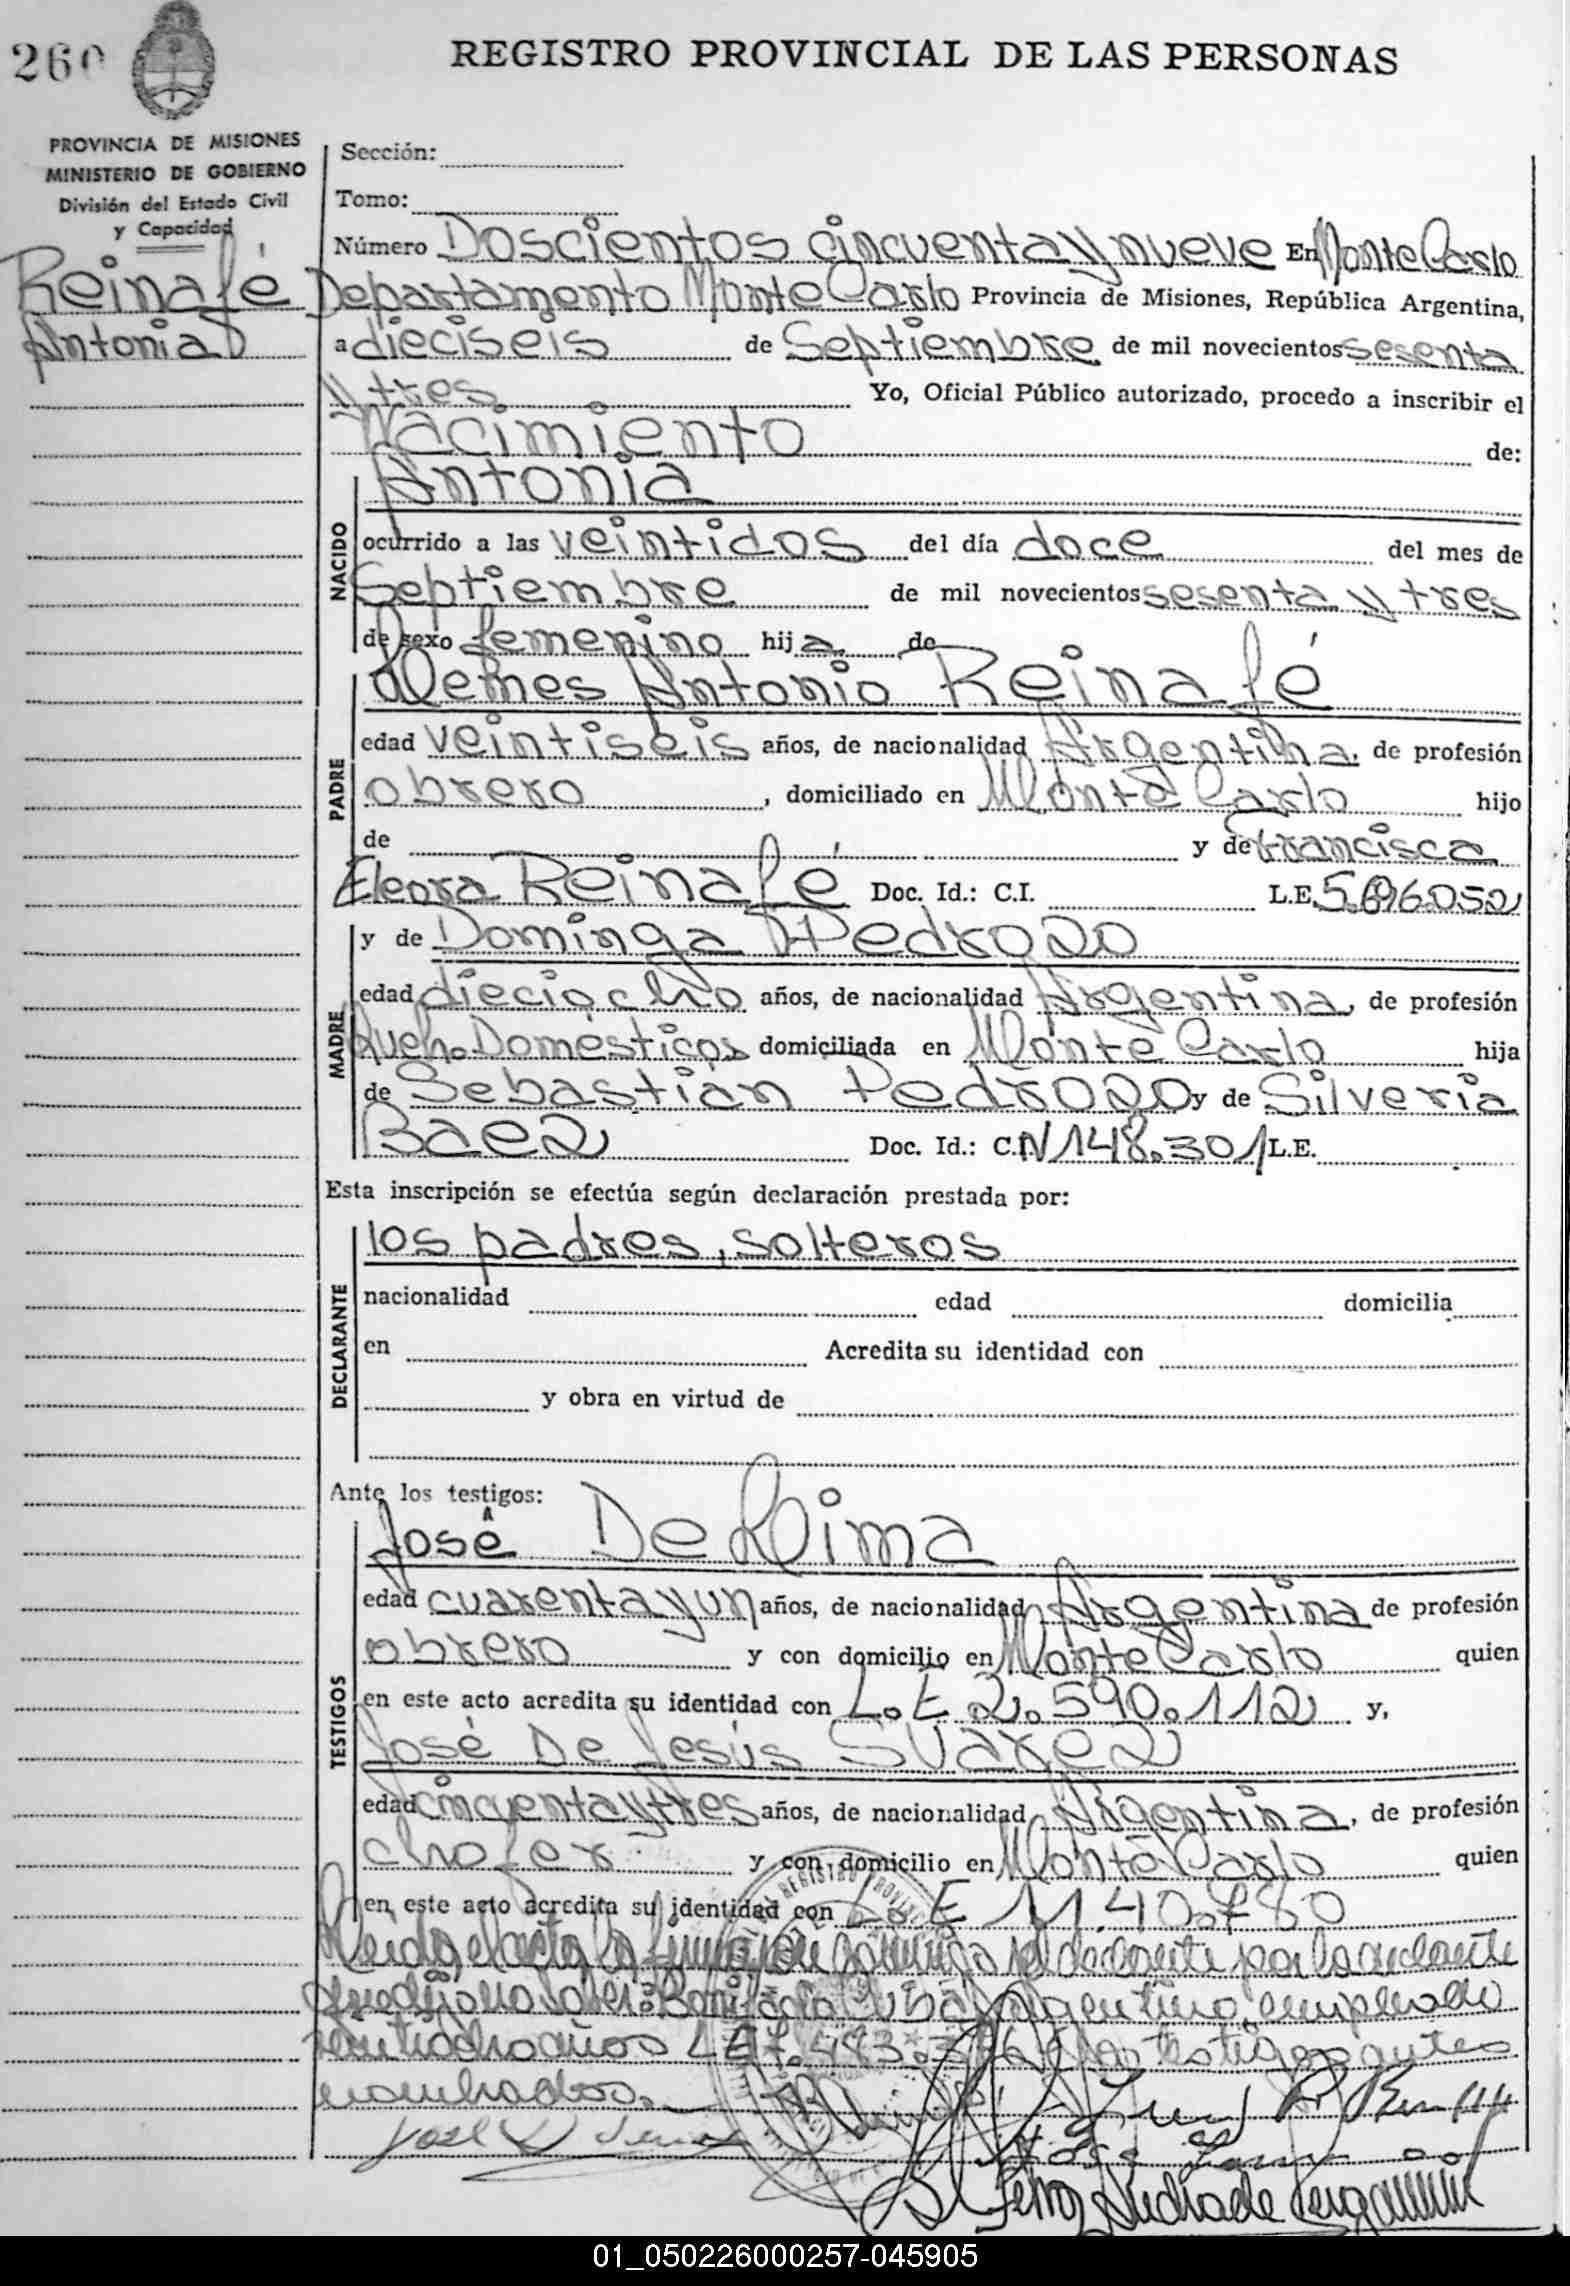 260
REGISTRO PROVINCIAL DE LAS PERSONAS
PROVINCIA DE MISIONES
MINISTERIO DE GOBIERNO
División del Estado Civil
y Capacidad
Reinafé
Antonia
Sección:
Tomo:
Número Doscientos cincuenta y nueve En Monte Carlo
Departamento Monte Carlo Provincia de Misiones, República Argentina,
a dieciseis de Septiembre de mil novecientos sesenta
y tres Yo, Oficial Público autorizado, procedo a inscribir el
Nacimiento de:
Antonia
NACIDO
ocurrido a las veintidos del día doce del mes de
Septiembre de mil novecientos sesenta y tres
de sexo femenino hija de
Antonio Reinafé
PADRE
edad veintiseis años, de nacionalidad Argentina, de profesión
obrero, domiciliado en Monte Carlo hijo
de y de Francisca
Reinafé Doc. Id.: C.I. L.E.
y de Dominga Pedrozo
MADRE
edad dieciocho años, de nacionalidad Argentina, de profesión
Domésticos domiciliada en Monte Carlo hija
de Sebastián Pedrozo y de Silveria
Baez Doc. Id.: C.I. Nº 148.301 L.E.
Esta inscripción se efectúa según declaración prestada por:
los padres, solteros
DECLARANTE
nacionalidad edad domicilia
en Acredita su identidad con
y obra en virtud de
Ante los testigos:
José De Lima
TESTIGOS
edad cuarenta y un años, de nacionalidad Argentina de profesión
obrero y con domicilio en Monte Carlo quien
en este acto acredita su identidad con L.E 2.590.112 y,
José De Jesús Suarez
edad cincuenta y tres años, de nacionalidad Argentina, de profesión
chofer y con domicilio en Monte Carlo quien
en este acto acredita su identidad con L.E
Leida el acta la firma por la declarante
que dijo no saber: Argentino, empleado
veintiocho años L.E testigos antes
nombrados.
01_050226000257-045905